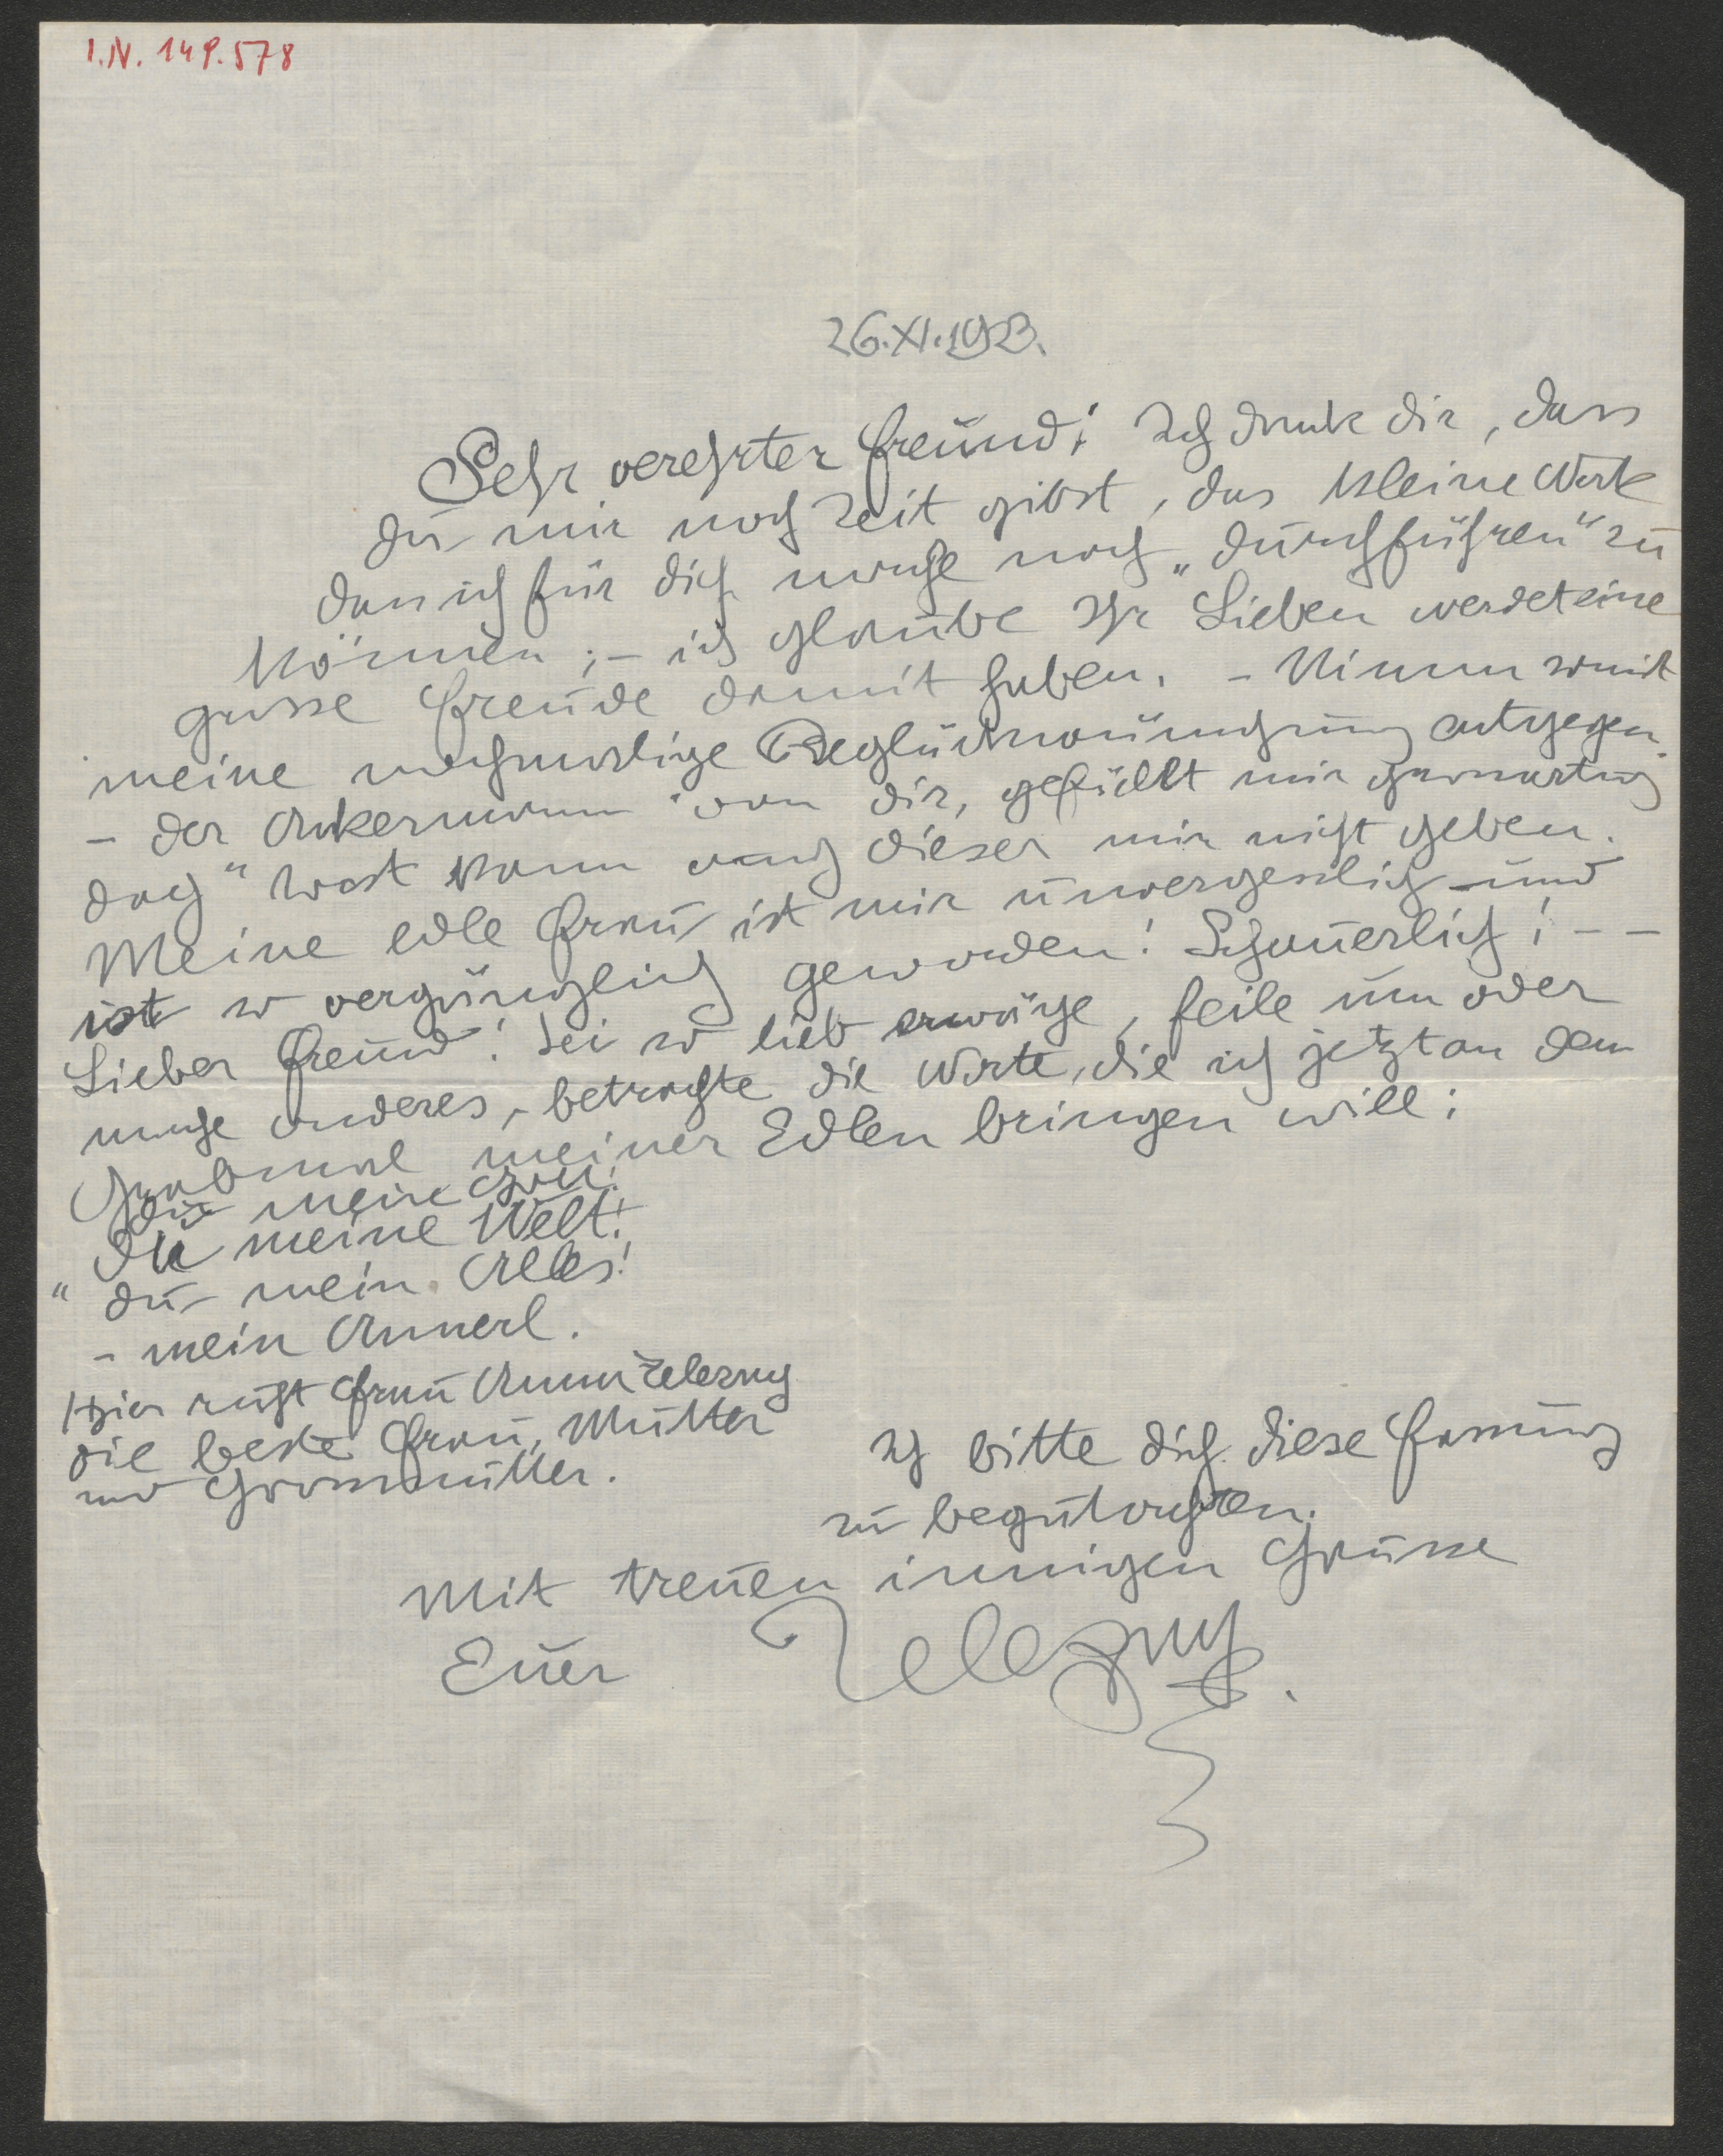 I.N. 149.578
26.XI.1923.
Sehr verehrter Freund! Ich dank dir, dass
du mir noch Zeit gibst, das kleine Werk
das ich für dich mache noch „durchführen" zu
können; – ich glaube Ihr Lieben werdet eine
grosse Freude damit haben. – Nimm somit
meine nochmalige Beglückwünschung entgegen.
– der Ankermann von dir, gefällt mir
doch " Trost kann auch dieser mir nicht geben.
Meine edle Frau ist mir unvergesslich – und
ist so vergänglich geworden! Schauerlich! – –
Lieber Freund! Sei so lieb erwäge, feile um oder
mache anderes, betrachte die Worte, die ich jetzt an dem
Grabmal meiner Edlen bringen will:
du mein
Du meine Welt!
" du mein Alles!
– mein Annerl.
Hier ruht Frau Anna Zelezny
die beste Frau, Mutter
und Grossmutter.
Ich bitte dich diese Fassung
zu begutachten.
Mit treuen innigen Grüsse
Euer Zelezny.